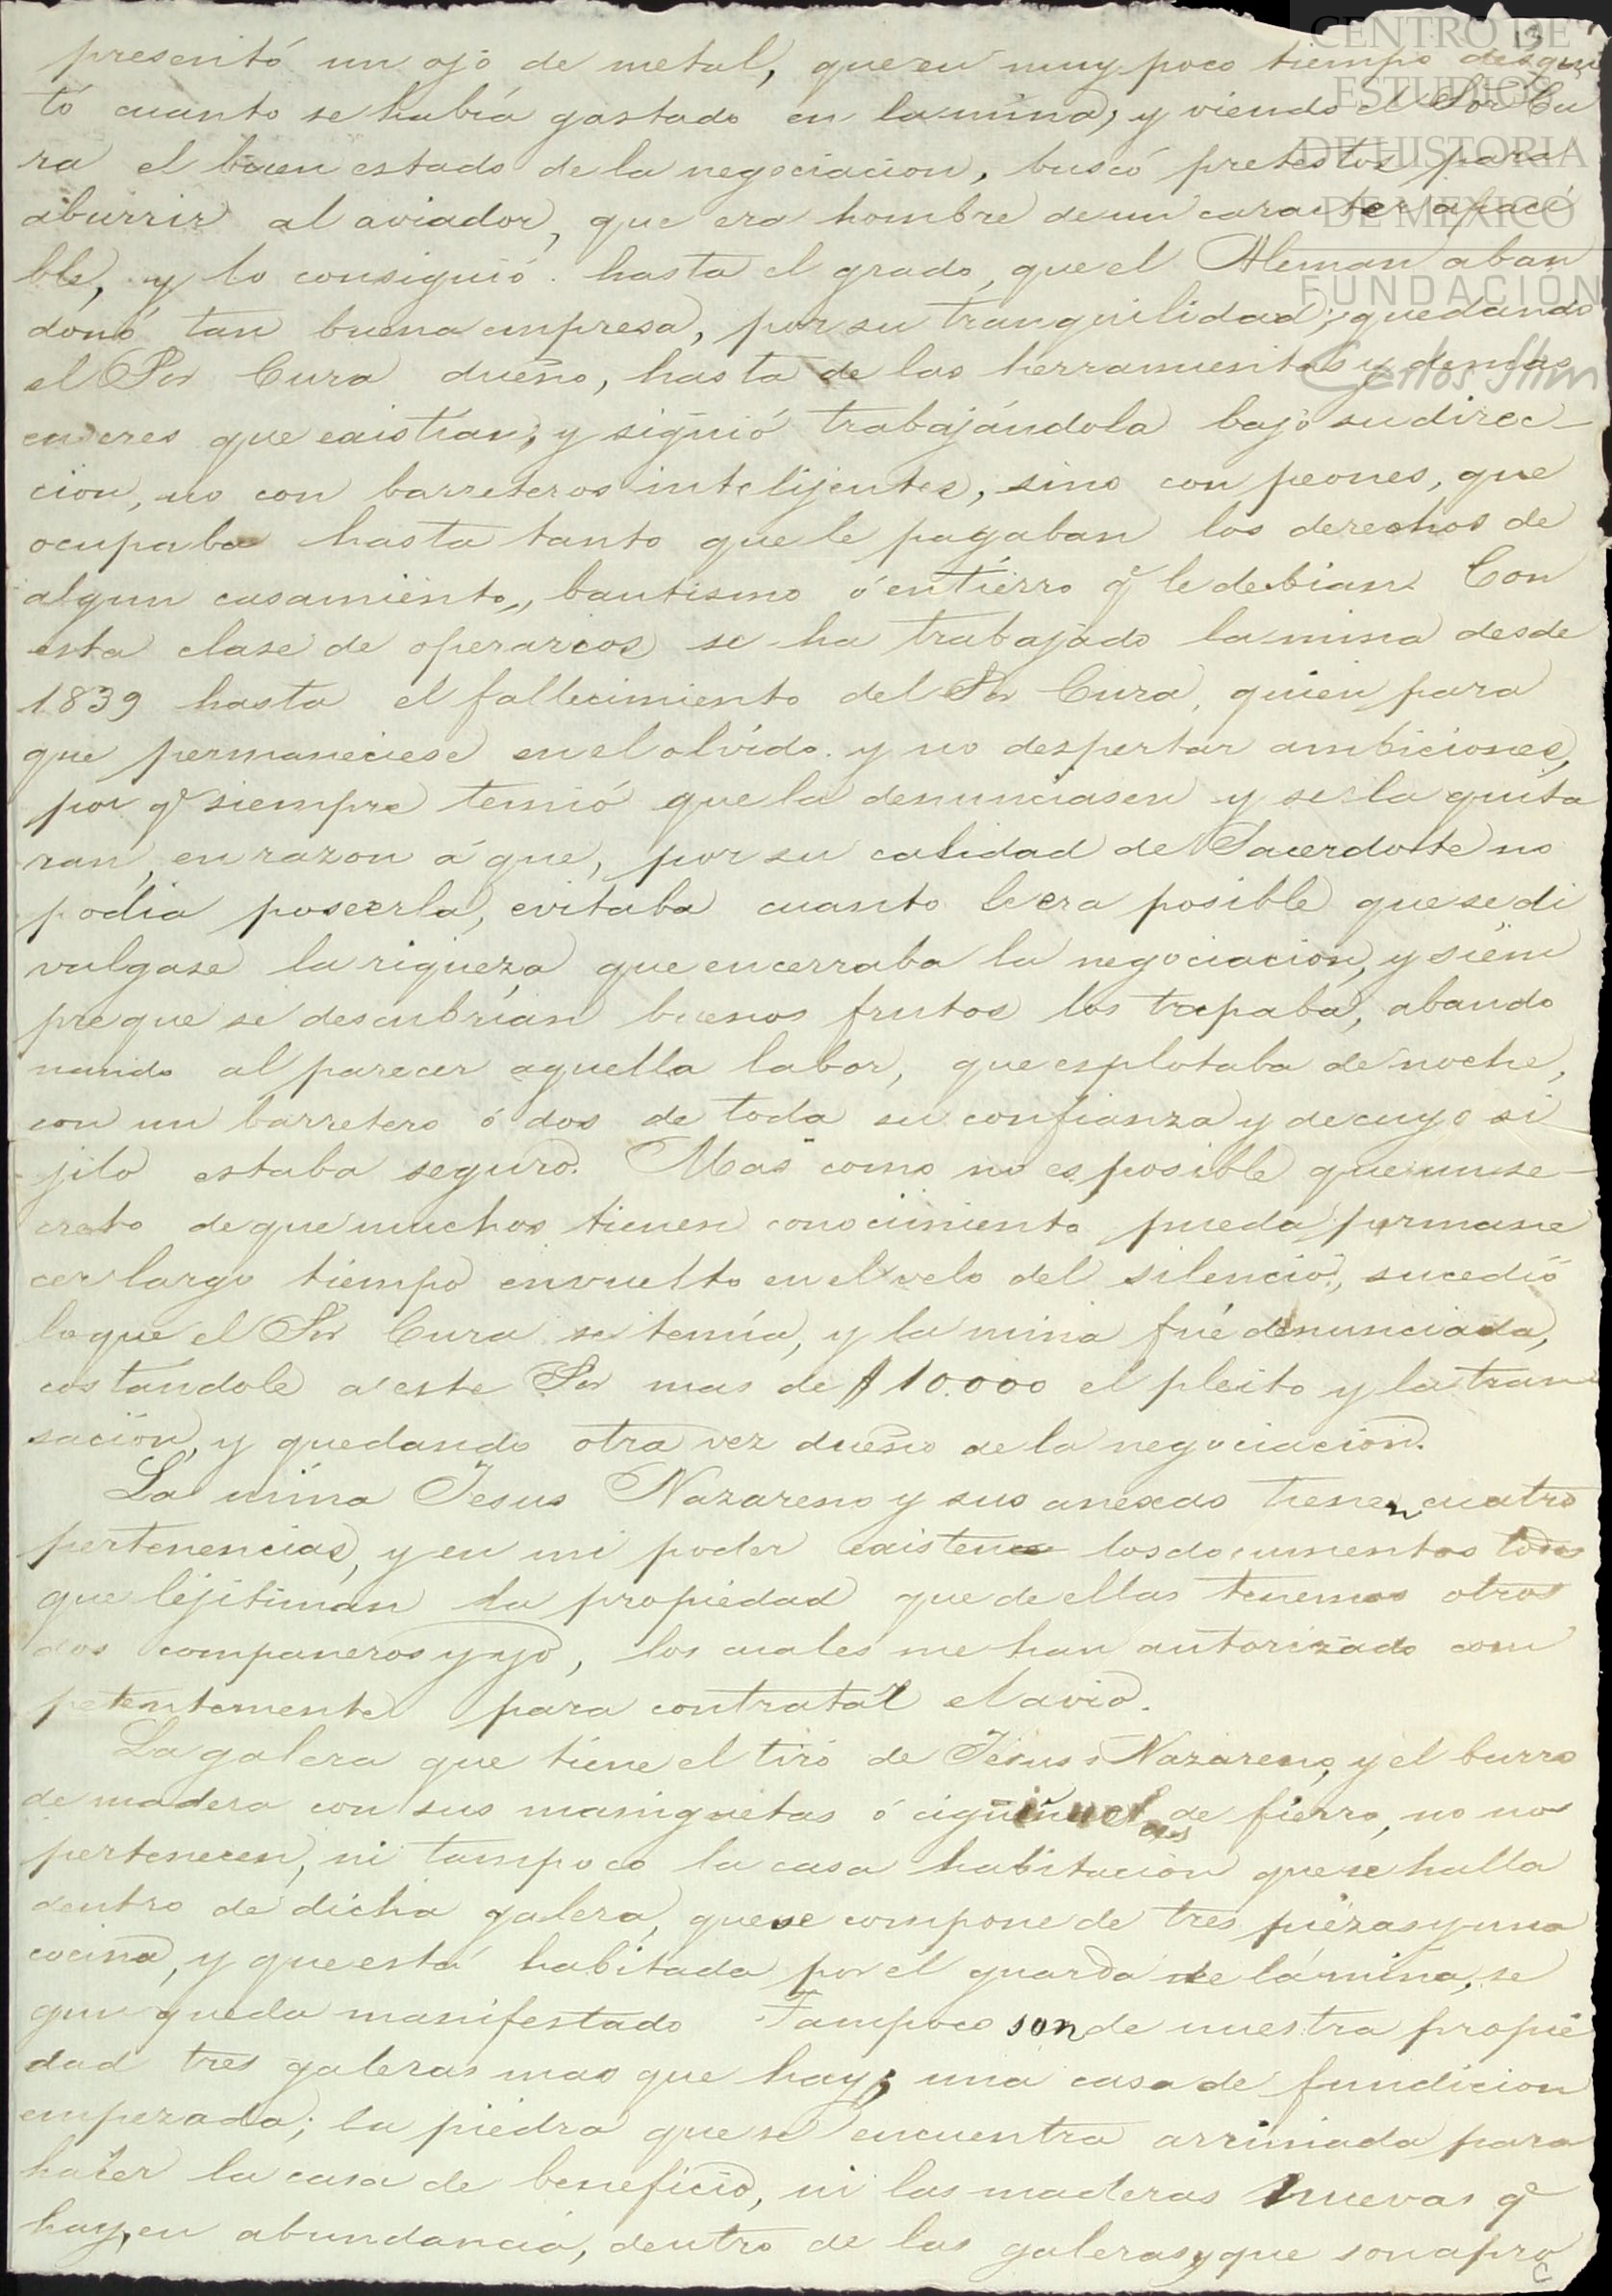 CENTRO DE
ESTUDIOS
DE HISTORIA
DE MEXICO
FUNDACIÓN
Carlos Slim
presentó un ojo de metal, que en muy poco tiempo desqui
tó cuanto se habia gastado en la mina, y viendo el Sor Cu
ra el buen estado de la negociacion, buscó pretestos para
aburrir al aviador, que era hombre de un caracter apaci
ble, y lo consiguió hasta el grado, que el Aleman aban
donó tan buena empresa, por su tranquilidad; quedando
el Sor Cura dueño, hasta de las herramientas y demas
enceres que existian, y siguió trabajándola bajo su direc-
cion, no con barreteros intelijentes, sino con peones, que
ocupaba hasta tanto que le pagaban los derechos de
algun casamiento, bautismo ó entierro qe le debian. Con
esta clase de operarios se ha trabajado la mina desde
1839 hasta el fallecimiento del Sor Cura, quien para
que permaneciese en el olvido y no despertar ambiciones,
por qe siempre temió que la denunciasen y se la quita
ran, en razon á que, por su calidad de Sacerdote no
podia poseerla, evitaba cuanto le era posible que se di
vulgase la riqueza que encerraba la negociacion, y siem
pre que se descubrian buenos frutos los tapaba, abando
nando al parecer aquella labor, que esplotaba de noche,
con un barretero ó dos de toda su confianza y de cuyo si
jilo estaba seguro. Mas como no es posible que un se-
creto de que muchos tienen conocimiento pueda permane
cer largo tiempo envuelto en el velo del silencio, sucedió
lo que el Sor Cura se temia, y la mina fué denunciada,
costandole a este Sor mas de $10.000 el pleito y la tran
sacion, y quedando otra vez dueño de la negociacion.
La mina Jesus Nazareno y sus anexas tienen cuatro
pertenencias, y en mi poder existen los documentos todos
que lejitiman la propiedad que de ellas tenemos otros
dos compañeros y yo, los cuales me han autorizado com
petentemente para contratar el avio.
La galera que tiene el tiro de Jesus Nazareno, y el burro
de madera con sus maniguetas ó cigüeñuelas de fierro, no nos
pertenecen, ni tampoco la casa habitacion que se halla
dentro de dicha galera, que se compone de tres piezas y una
cocina, y que está habitada por el guarda de la mina, se
gun queda manifestado Tampoco son de nuestra propie
dad tres galeras mas que hay; una casa de fundicion
empezada; la piedra que se encuentra arrimada para
hacer la casa de beneficio, ni las maderas nuevas qe
hay, en abundancia, dentro de las galeras y que son apro